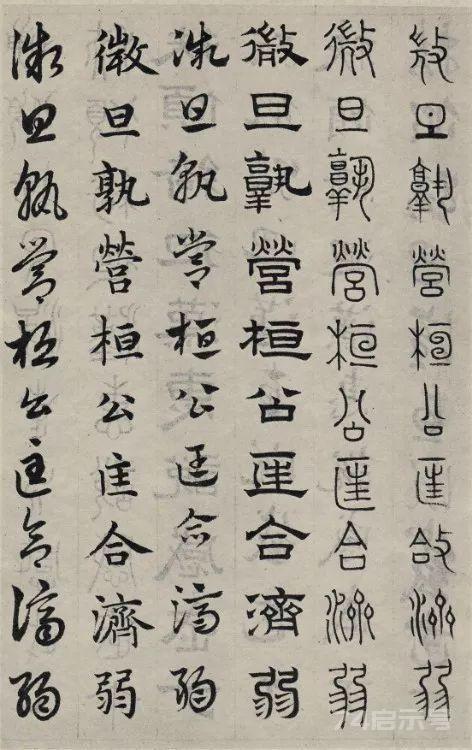 微旦孰營桓公匡合濟弱
微旦孰營桓公匡合濟弱
微旦孰營桓公匡合濟弱
微旦孰營桓公匡合濟弱
微旦孰營桓公匡合濟弱
微旦孰營桓公匡合濟弱
74启示号